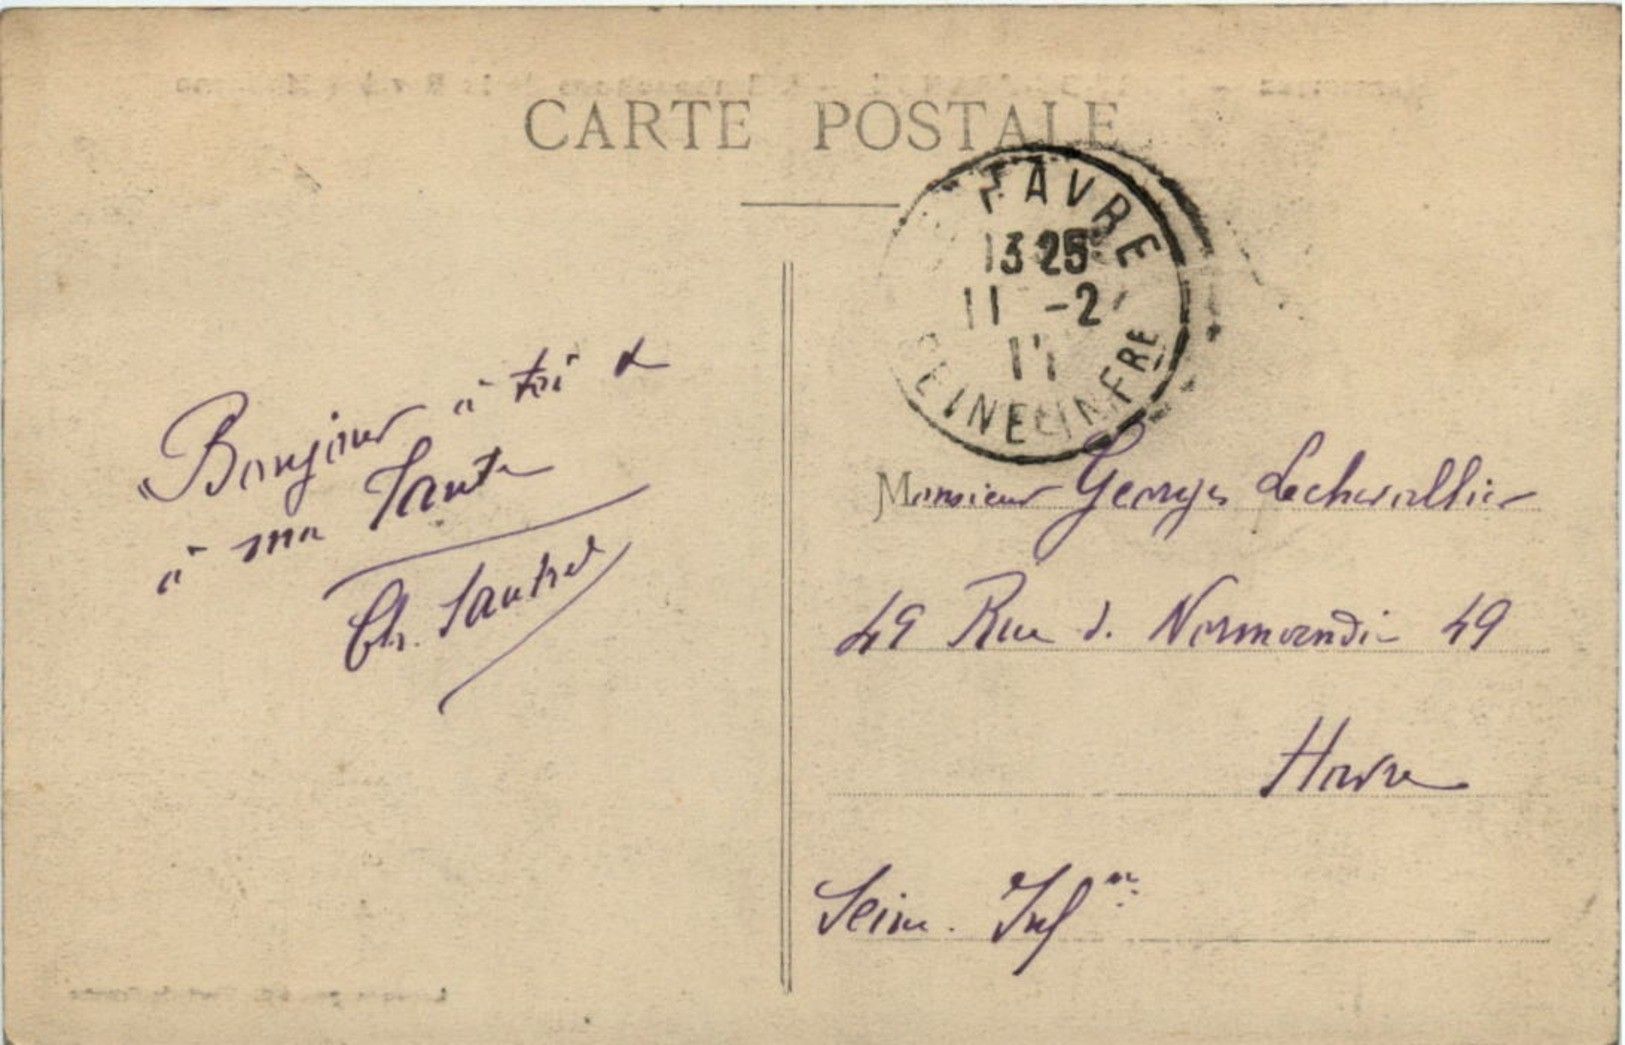 CARTE POSTALE
HAVRE
13 25
11 -2
11
SEINE INFRE
Bonjour à toi &
à ma Tante
Ch.
Monsieur Georges Lechevallier
49 Rue de Normandie 49
Havre
Seine Infre